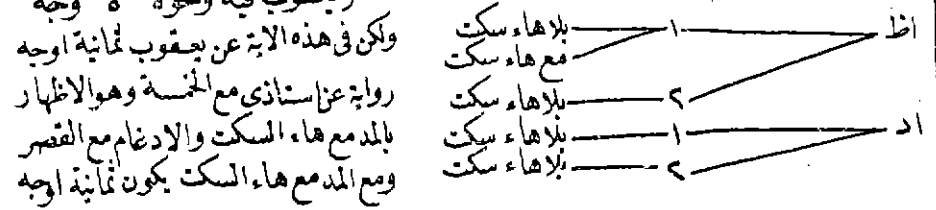 يعقوب فيه ونحوه ٥ اوجه
ولكن فى هذه الاية عن يعقوب ثمانية اوجه
رواية عن استاذى مع الخمسة وهو الاظهار
بالمد مع هاء السكت والادغام مع القصر
ومع المد مع هاء السكت يكون ثمانية اوجه
اظ ١ بلا هاء سكت
مع هاء سكت
٢ بلا هاء سكت
اد ١ بلا هاء سكت
٢ بلا هاء سكت